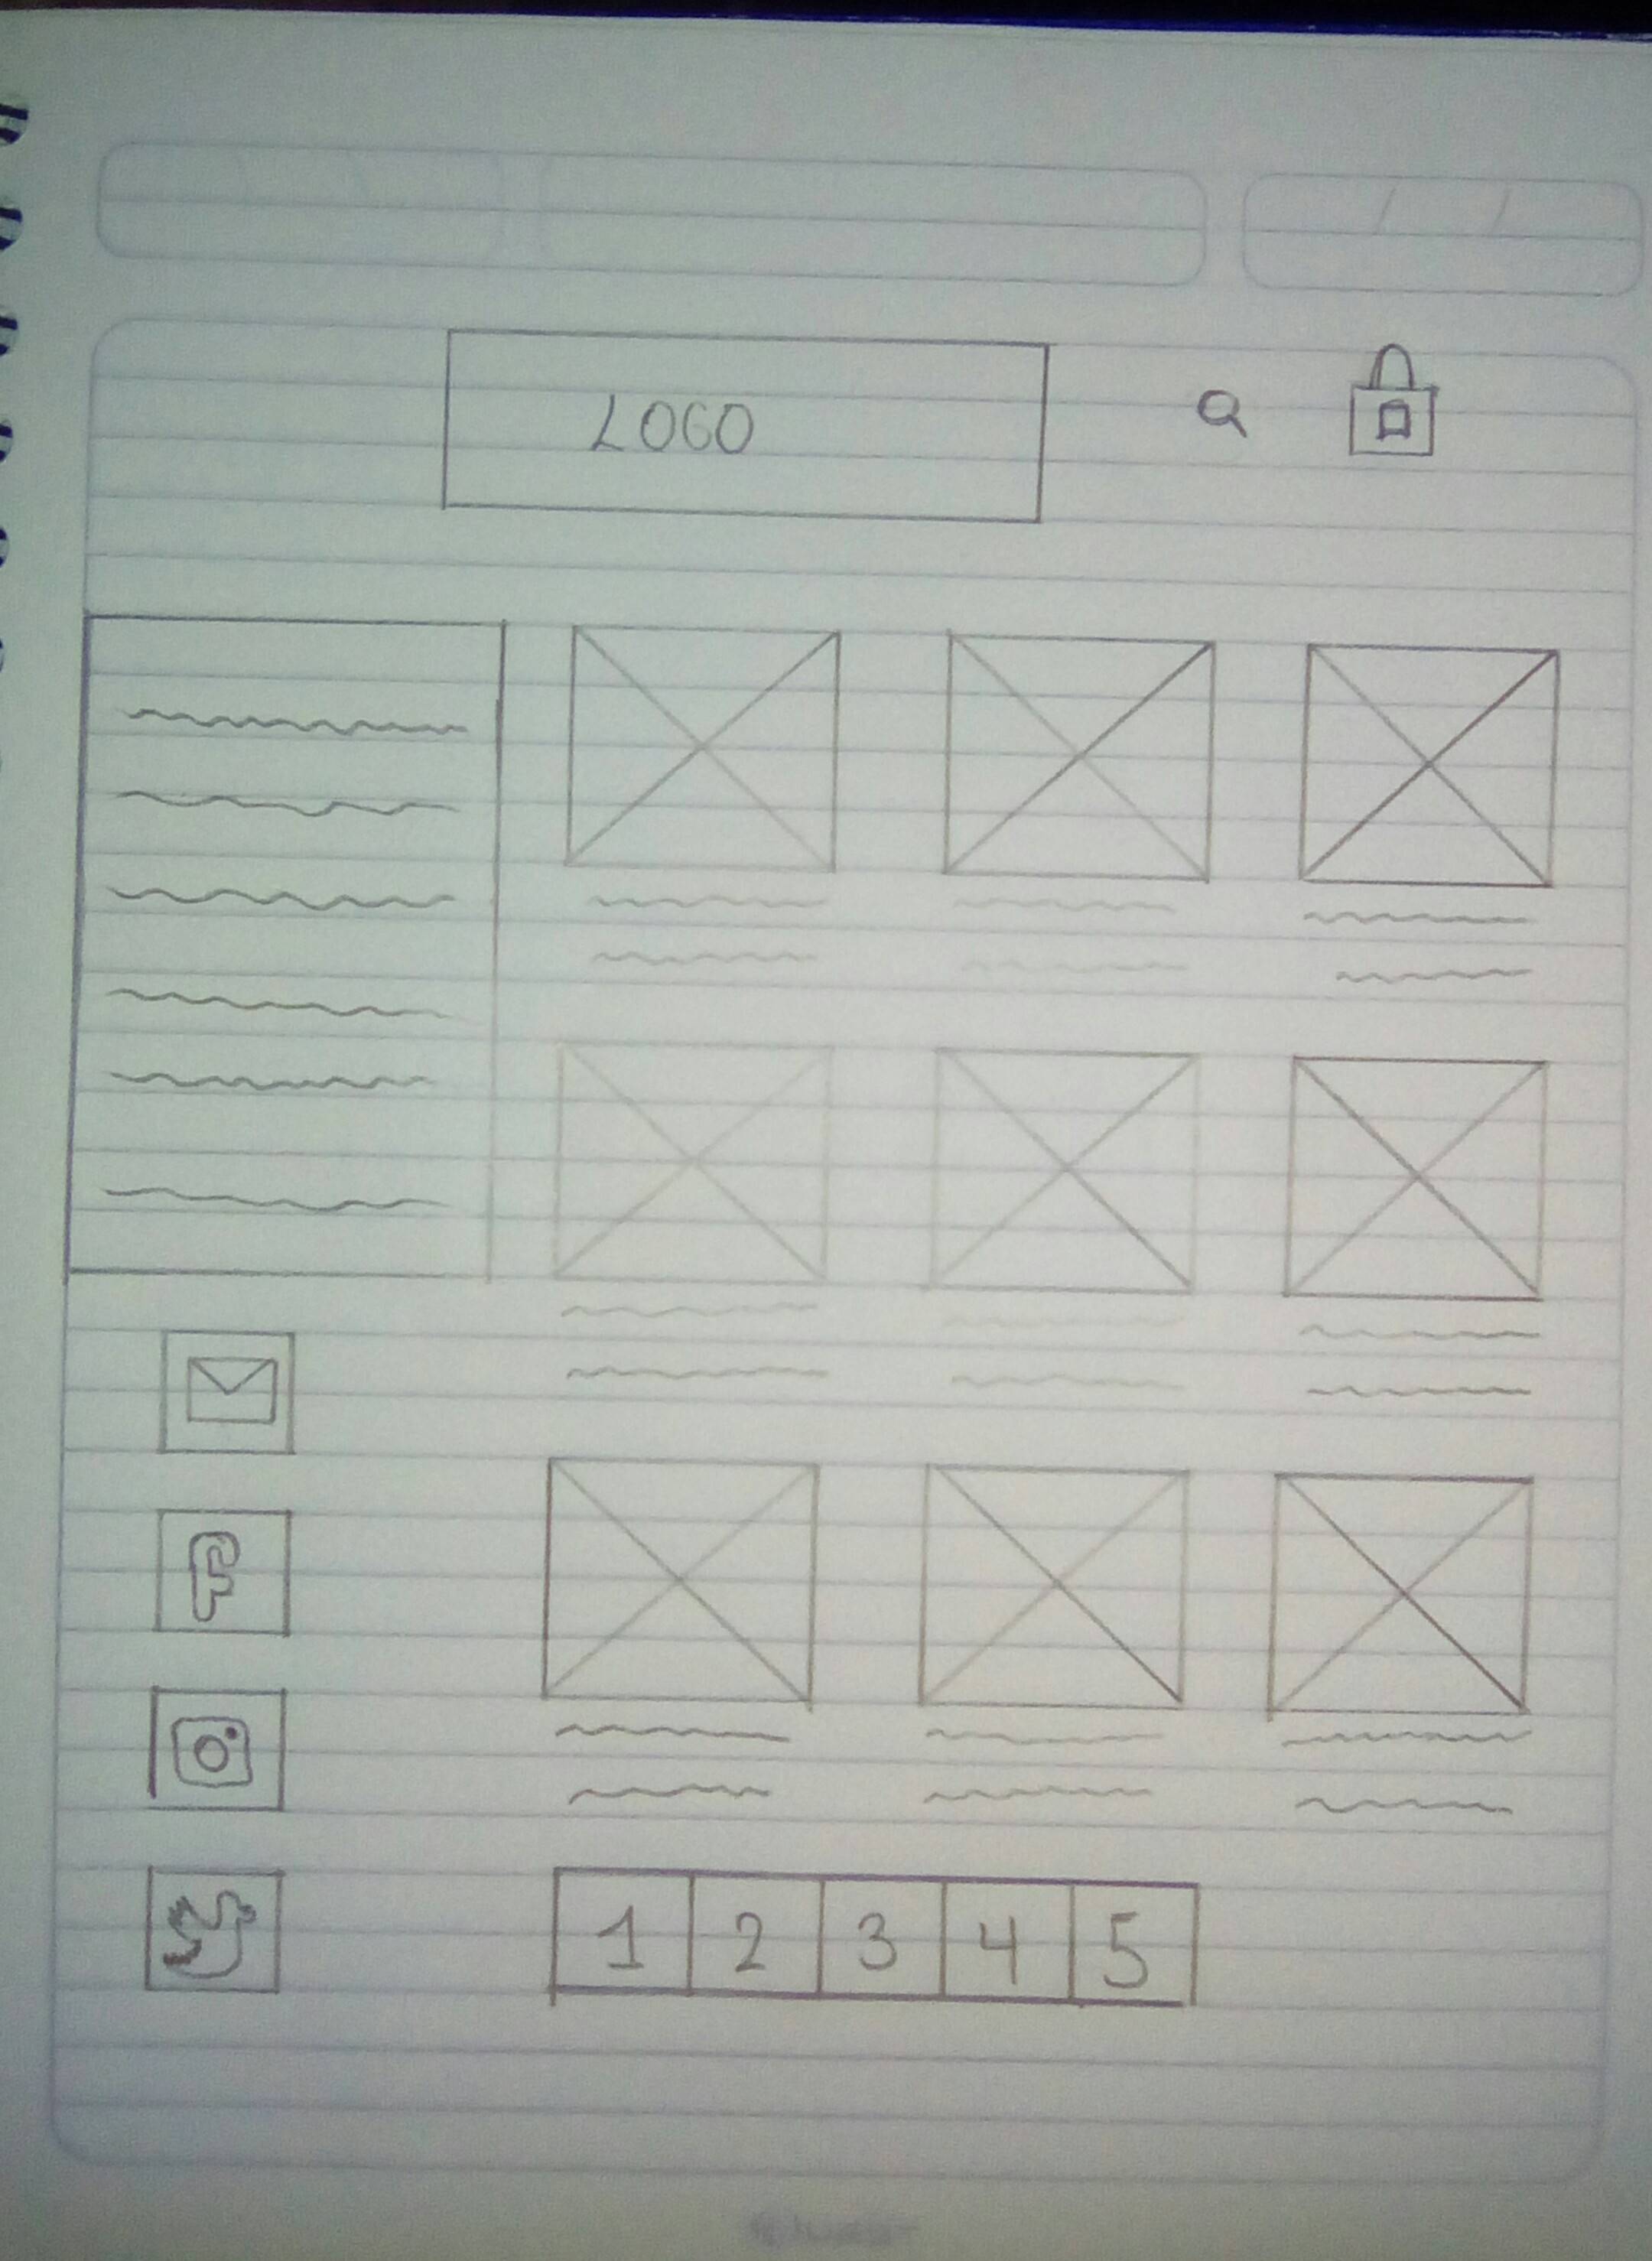 LOGO
F
1 2 3 4 5